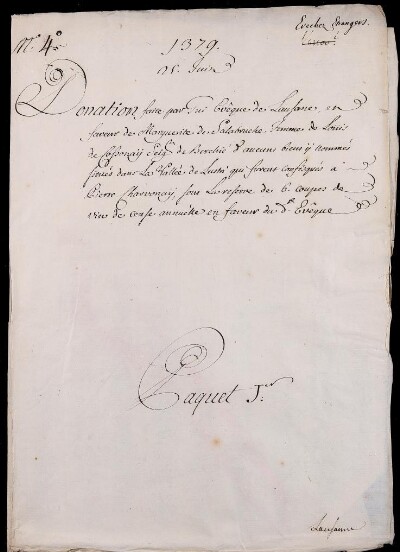 Evêchés Etrangers.
N.° 4.°
1379.
25. Juin
Donation faite par Gui Evêque de Lausane, en
faveur de Marguerite de femme de Louis
de Seig.r de Berchié d'aucuns biens y nommés
situés dans La Vallée de qui furent confisqués à
Pierre Charvonay sous La reserve de 6. coupes de
vin de cense annuelle en faveur du d.t Evêque
Paquet 1.er
Lausanne